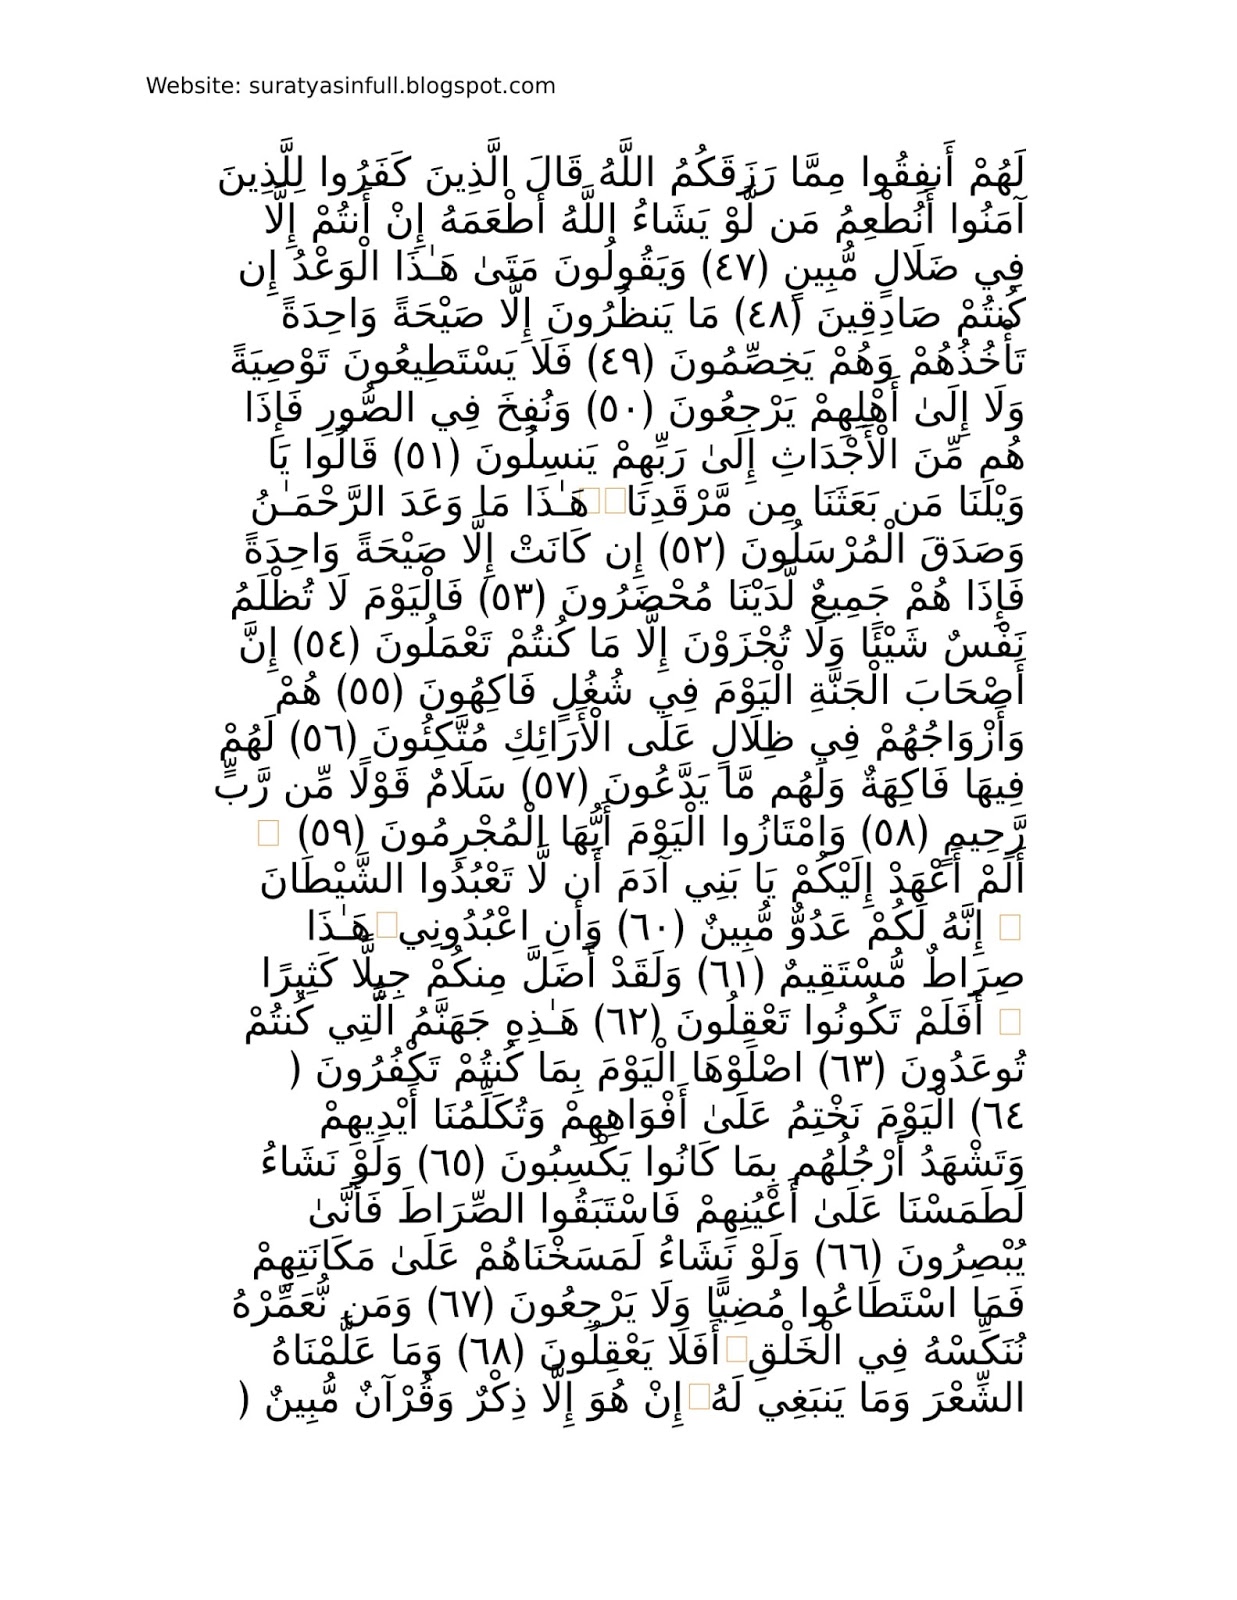 Website: suratyasinfull.blogspot.com
لَهُمْ أَنفِقُوا مِمَّا رَزَقَكُمُ اللَّهُ قَالَ الَّذِينَ كَفَرُوا لِلَّذِينَ
آمَنُوا أَنُطْعِمُ مَن لَّوْ يَشَاءُ اللَّهُ أَطْعَمَهُ إِنْ أَنتُمْ إِلَّا
فِي ضَلَالٍ مُّبِينٍ (٤٧) وَيَقُولُونَ مَتَىٰ هَـٰذَا الْوَعْدُ إِن
كُنتُمْ صَادِقِينَ (٤٨) مَا يَنظُرُونَ إِلَّا صَيْحَةً وَاحِدَةً
تَأْخُذُهُمْ وَهُمْ يَخِصِّمُونَ (٤٩) فَلَا يَسْتَطِيعُونَ تَوْصِيَةً
وَلَا إِلَىٰ أَهْلِهِمْ يَرْجِعُونَ (٥٠) وَنُفِخَ فِي الصُّورِ فَإِذَا
هُم مِّنَ الْأَجْدَاثِ إِلَىٰ رَبِّهِمْ يَنسِلُونَ (٥١) قَالُوا يَا
وَيْلَنَا مَن بَعَثَنَا مِن مَّرْقَدِنَا هَـٰذَا مَا وَعَدَ الرَّحْمَـٰنُ
وَصَدَقَ الْمُرْسَلُونَ (٥٢) إِن كَانَتْ إِلَّا صَيْحَةً وَاحِدَةً
فَإِذَا هُمْ جَمِيعٌ لَّدَيْنَا مُحْضَرُونَ (٥٣) فَالْيَوْمَ لَا تُظْلَمُ
نَفْسٌ شَيْئًا وَلَا تُجْزَوْنَ إِلَّا مَا كُنتُمْ تَعْمَلُونَ (٥٤) إِنَّ
أَصْحَابَ الْجَنَّةِ الْيَوْمَ فِي شُغُلٍ فَاكِهُونَ (٥٥) هُمْ
وَأَزْوَاجُهُمْ فِي ظِلَالٍ عَلَى الْأَرَائِكِ مُتَّكِئُونَ (٥٦) لَهُمْ
فِيهَا فَاكِهَةٌ وَلَهُم مَّا يَدَّعُونَ (٥٧) سَلَامٌ قَوْلًا مِّن رَّبٍّ
رَّحِيمٍ (٥٨) وَامْتَازُوا الْيَوْمَ أَيُّهَا الْمُجْرِمُونَ (٥٩)
أَلَمْ أَعْهَدْ إِلَيْكُمْ يَا بَنِي آدَمَ أَن لَّا تَعْبُدُوا الشَّيْطَانَ
إِنَّهُ لَكُمْ عَدُوٌّ مُّبِينٌ (٦٠) وَأَنِ اعْبُدُونِي هَـٰذَا
صِرَاطٌ مُّسْتَقِيمٌ (٦١) وَلَقَدْ أَضَلَّ مِنكُمْ جِبِلًّا كَثِيرًا
أَفَلَمْ تَكُونُوا تَعْقِلُونَ (٦٢) هَـٰذِهِ جَهَنَّمُ الَّتِي كُنتُمْ
تُوعَدُونَ (٦٣) اصْلَوْهَا الْيَوْمَ بِمَا كُنتُمْ تَكْفُرُونَ (
٦٤) الْيَوْمَ نَخْتِمُ عَلَىٰ أَفْوَاهِهِمْ وَتُكَلِّمُنَا أَيْدِيهِمْ
وَتَشْهَدُ أَرْجُلُهُم بِمَا كَانُوا يَكْسِبُونَ (٦٥) وَلَوْ نَشَاءُ
لَطَمَسْنَا عَلَىٰ أَعْيُنِهِمْ فَاسْتَبَقُوا الصِّرَاطَ فَأَنَّىٰ
يُبْصِرُونَ (٦٦) وَلَوْ نَشَاءُ لَمَسَخْنَاهُمْ عَلَىٰ مَكَانَتِهِمْ
فَمَا اسْتَطَاعُوا مُضِيًّا وَلَا يَرْجِعُونَ (٦٧) وَمَن نُّعَمِّرْهُ
نُنَكِّسْهُ فِي الْخَلْقِ أَفَلَا يَعْقِلُونَ (٦٨) وَمَا عَلَّمْنَاهُ
الشِّعْرَ وَمَا يَنبَغِي لَهُ إِنْ هُوَ إِلَّا ذِكْرٌ وَقُرْآنٌ مُّبِينٌ (